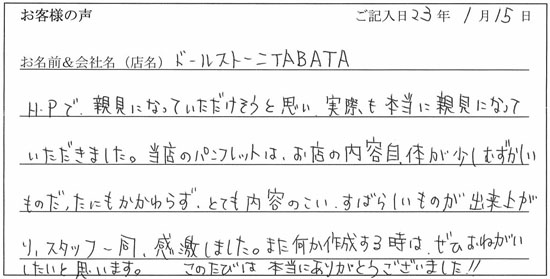 お客様の声 ご記入日 23 年 1 月 15 日
お名前&会社名(店名) ドールストーニTABATA
H.Pで、親見になっていただけそうと思い、実際も本当に親見になって
いただきました。当店のパンフレットは、お店の内容自体が少しむずかしい
ものだったにもかかわらず、とても内容のこい、すばらしいものが出来上が
り、スタッフ一同、感激しました。また何か作成する時は、ぜひおねがい
したいと思います。 このたびは本当にありがとうございました!!